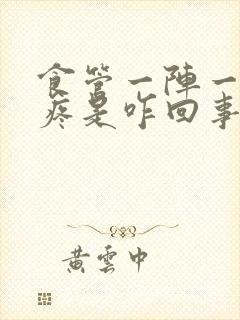 食管一陣一
疼是咋回事
黃雲中